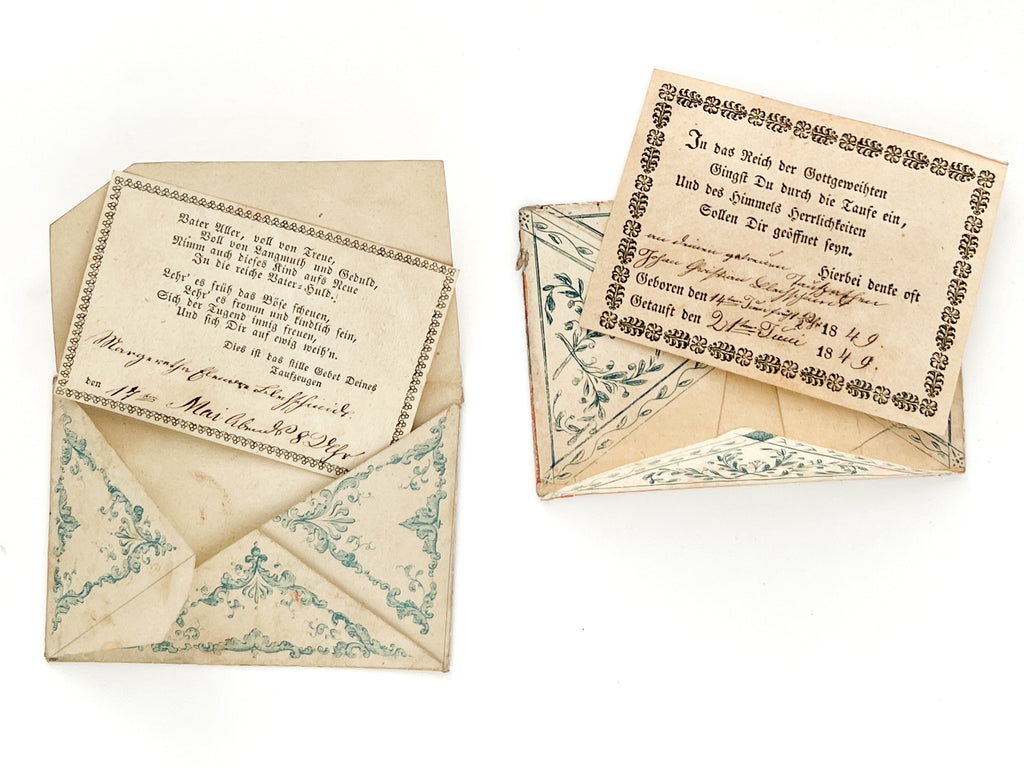 Vater Aller, voll von Treue,
Voll von Langmuth und Geduld,
Nimm auch dieses Kind aufs Neue
In die reiche Vater-Huld!
Lehr' es früh das Böse scheuen,
Lehr' es fromm und kindlich sein,
Sich der Tugend innig freuen,
Und sich Dir auf ewig weih'n.
Dies ist das stille Gebet Deines
Taufzeugen
Margaretha
den 17 ten Mai Abends 8 Uhr
In das Reich der Gottgeweihten
Gingst Du durch die Taufe ein,
Und des Himmels Herrlichkeiten
Sollen Dir geöffnet seyn.
Hierbei denke oft
an deinen
Geboren den 14ten 1849.
Getauft den 21ten Juni 1849.